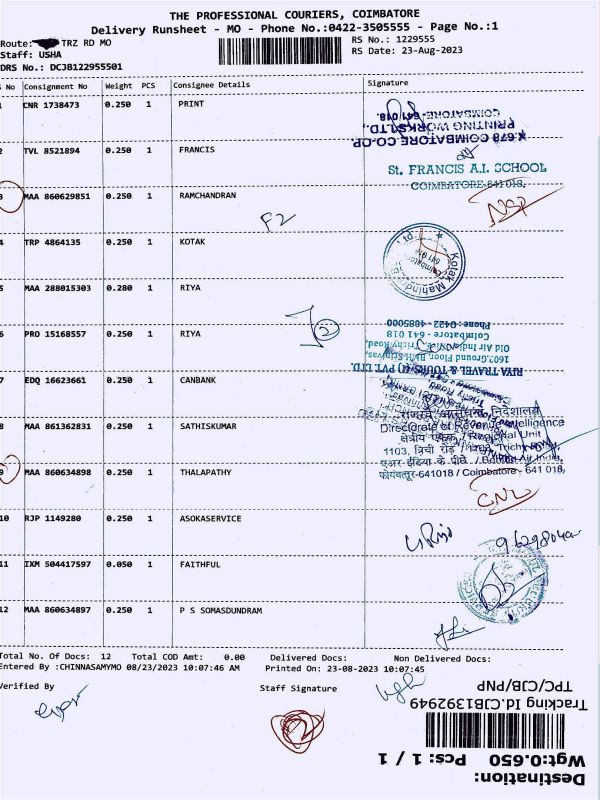 THE PROFESSIONAL COURIERS, COIMBATORE
Delivery Runsheet - MO - Phone No.:0422-3505555 - Page No.:1
Route: TRZ RD MO
RS No.: 1229555
Staff: USHA
RS Date: 23-Aug-2023
DRS No.: DCJB122955501
No Consignment No Weight PCS Consignee Details Signature
CNR 1738473 0.250 1 PRINT
X.678 COIMBATORE CO-OP.
PRINTING WORKS LTD.,
COIMBATORE - 641 018.
2 TVL 8521894 0.250 1 FRANCIS
St. FRANCIS A.I. SCHOOL
COIMBATORE-641 018.
3 MAA 860629851 0.250 1 RAMCHANDRAN
F2
4 TRP 4864135 0.250 1 KOTAK
Kotak Mahindra
5 MAA 288015303 0.280 1 RIYA
6 PRO 15168557 0.250 1 RIYA
RIYA TRAVEL & TOURS (I) PVT. LTD.
Old Air India Office, Trichy Road,
Coimbatore - 641 018
Phone : 0422 - 4085000
7 EDQ 16623661 0.250 1 CANBANK
8 MAA 861362831 0.250 1 SATHISKUMAR
निदेशालय
Directorate of Revenue Intelligence
क्षेत्रीय एकक / Regional Unit
1103, त्रिची रोड
एअर इंडिया के पीछे / Behind Air India,
कोयंबत्तूर-641018 / Coimbatore - 641 018.
9 MAA 860634898 0.250 1 THALAPATHY
CNL
10 RJP 1149280 0.250 1 ASOKASERVICE
11 IXM 504417597 0.050 1 FAITHFUL
12 MAA 860634897 0.250 1 P S SOMASDUNDRAM
Total No. Of Docs: 12 Total COD Amt: 0.00 Delivered Docs: Non Delivered Docs:
Entered By :CHINNASAMYMO 08/23/2023 10:07:46 AM Printed On: 23-08-2023 10:07:45
Verified By Staff Signature
Destination:
Wgt:0.650 Pcs: 1 / 1
Tracking Id.CJB1392949
TPC/CJB/PNP